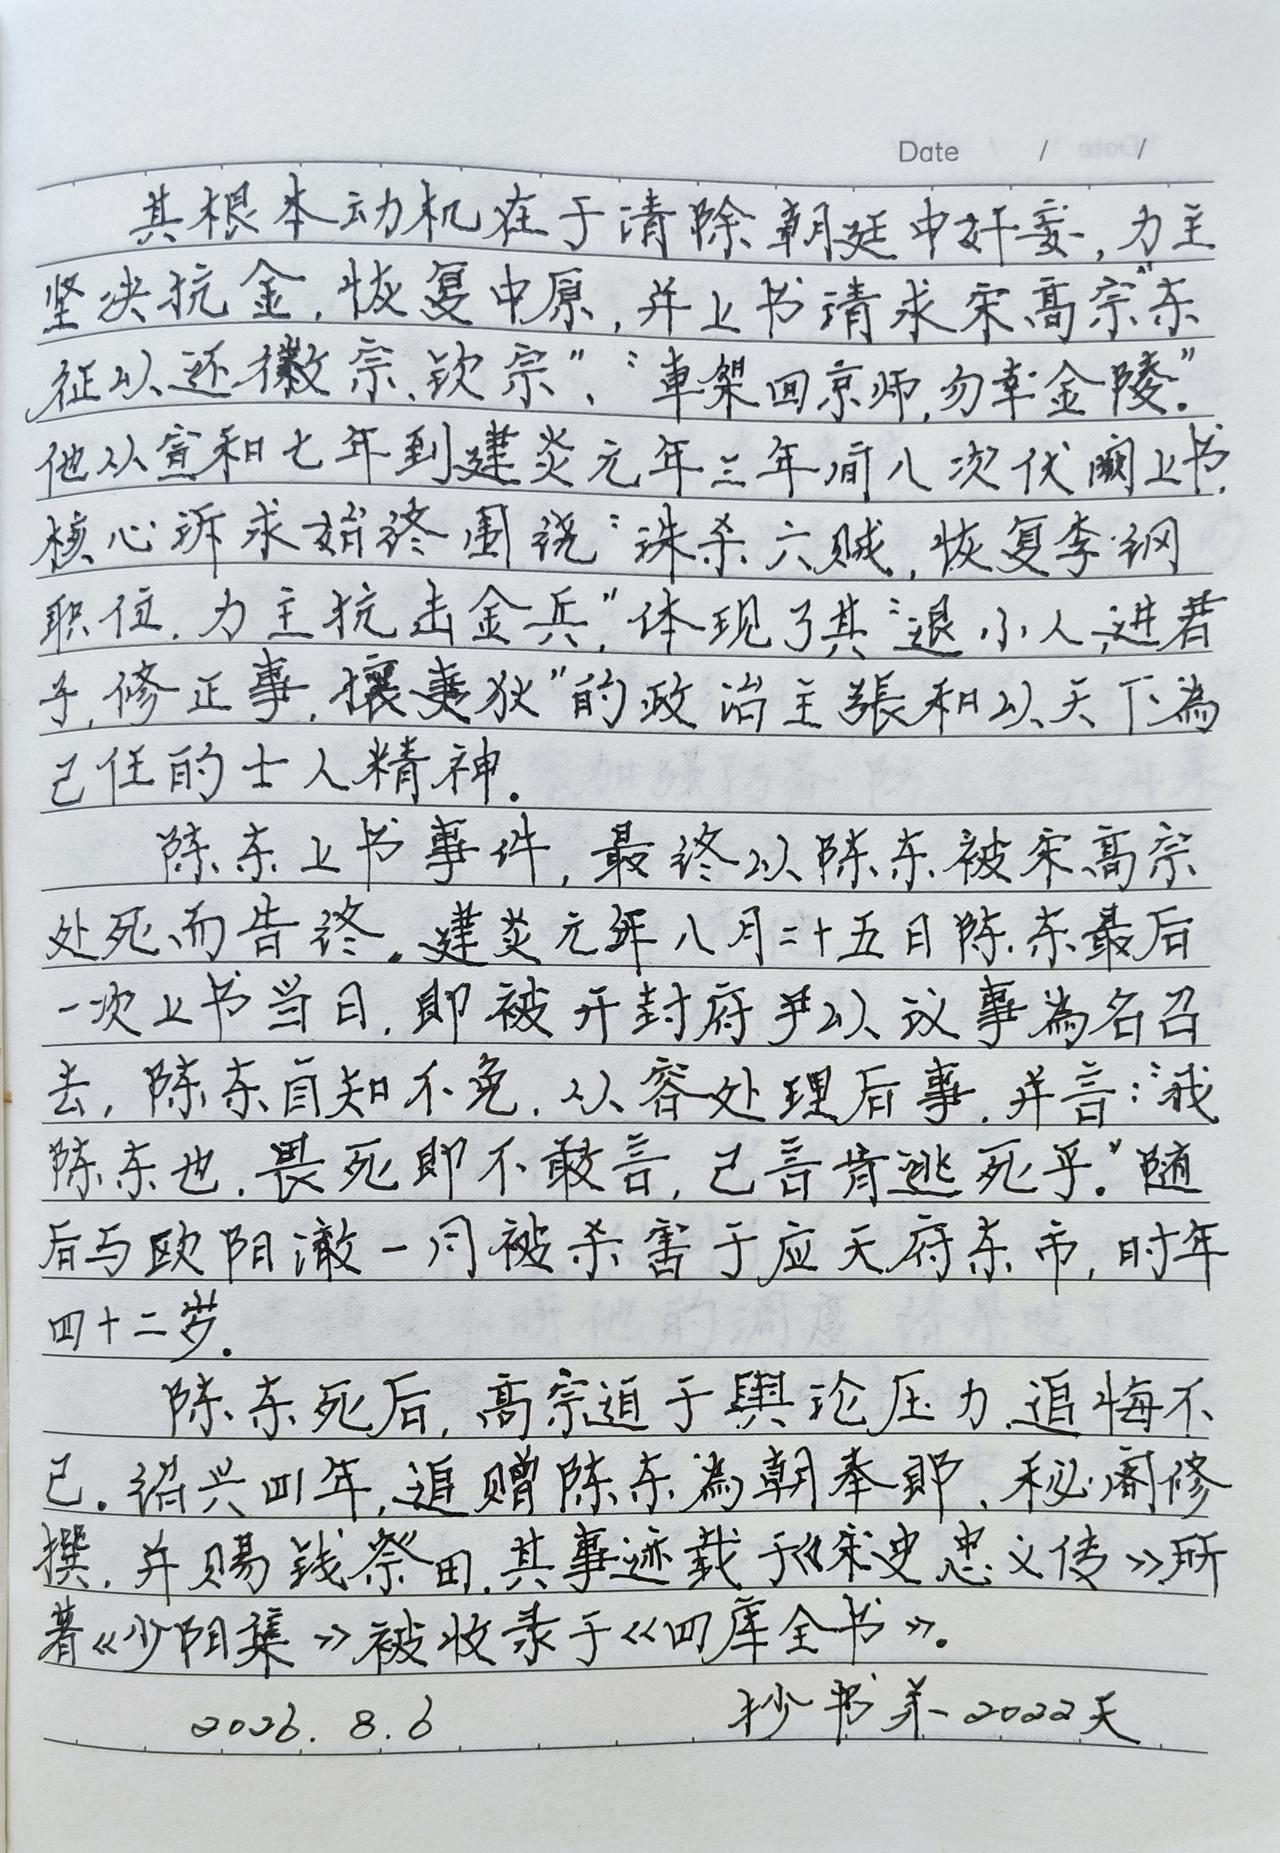 Date / /
其根本动机在于清除朝廷中奸妄，力主
坚决抗金，恢复中原，并上书请求宋高宗“东
征以还徽宗、钦宗”、“車架回京师，勿幸金陵”。
他从宣和七年到建炎元年三年间八次伏阙上书，
核心诉求始终围绕“诛杀六贼，恢复李纲
职位，力主抗击金兵”体现了其“退小人，进君
子，修正事，攘夷狄”的政治主張和以天下為
己任的士人精神。
陈东上书事件，最终以陈东被宋高宗
处死而告终。建炎元年八月二十五日陈东最后
一次上书当日，即被开封府尹以议事為名召
去，陈东自知不免，从容处理后事，并言：“我
陈东也，畏死即不敢言，已言肯逃死乎。”随
后与欧阳澈一同被杀害于应天府东市，时年
四十二岁。
陈东死后，高宗迫于舆论压力，追悔不
已。绍兴四年，追赠陈东為朝奉郎、秘阁修
撰，并赐钱祭田，其事迹载于《宋史忠义传》所
著《少阳集》被收录于《四库全书》。
2026.8.6 抄书第2022天